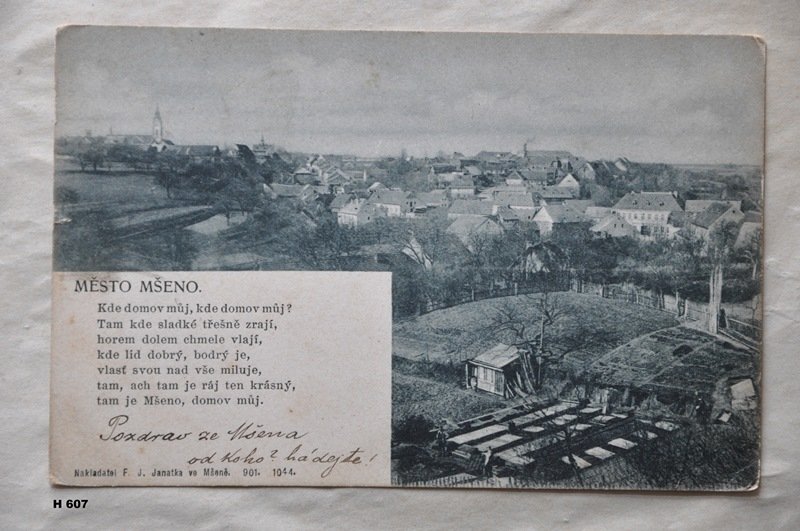 MĚSTO MŠENO.
Kde domov můj, kde domov můj?
Tam kde sladké třešně zrají,
horem dolem chmele vlají,
kde lid dobrý, bodrý je,
vlasť svou nad vše miluje,
tam, ach tam je ráj ten krásný,
tam je Mšeno, domov můj.
Pozdrav ze Mšena
od koho? hádejte!
Nakladatel F. J. Janatka ve Mšeně. 901. 1044.
H 607